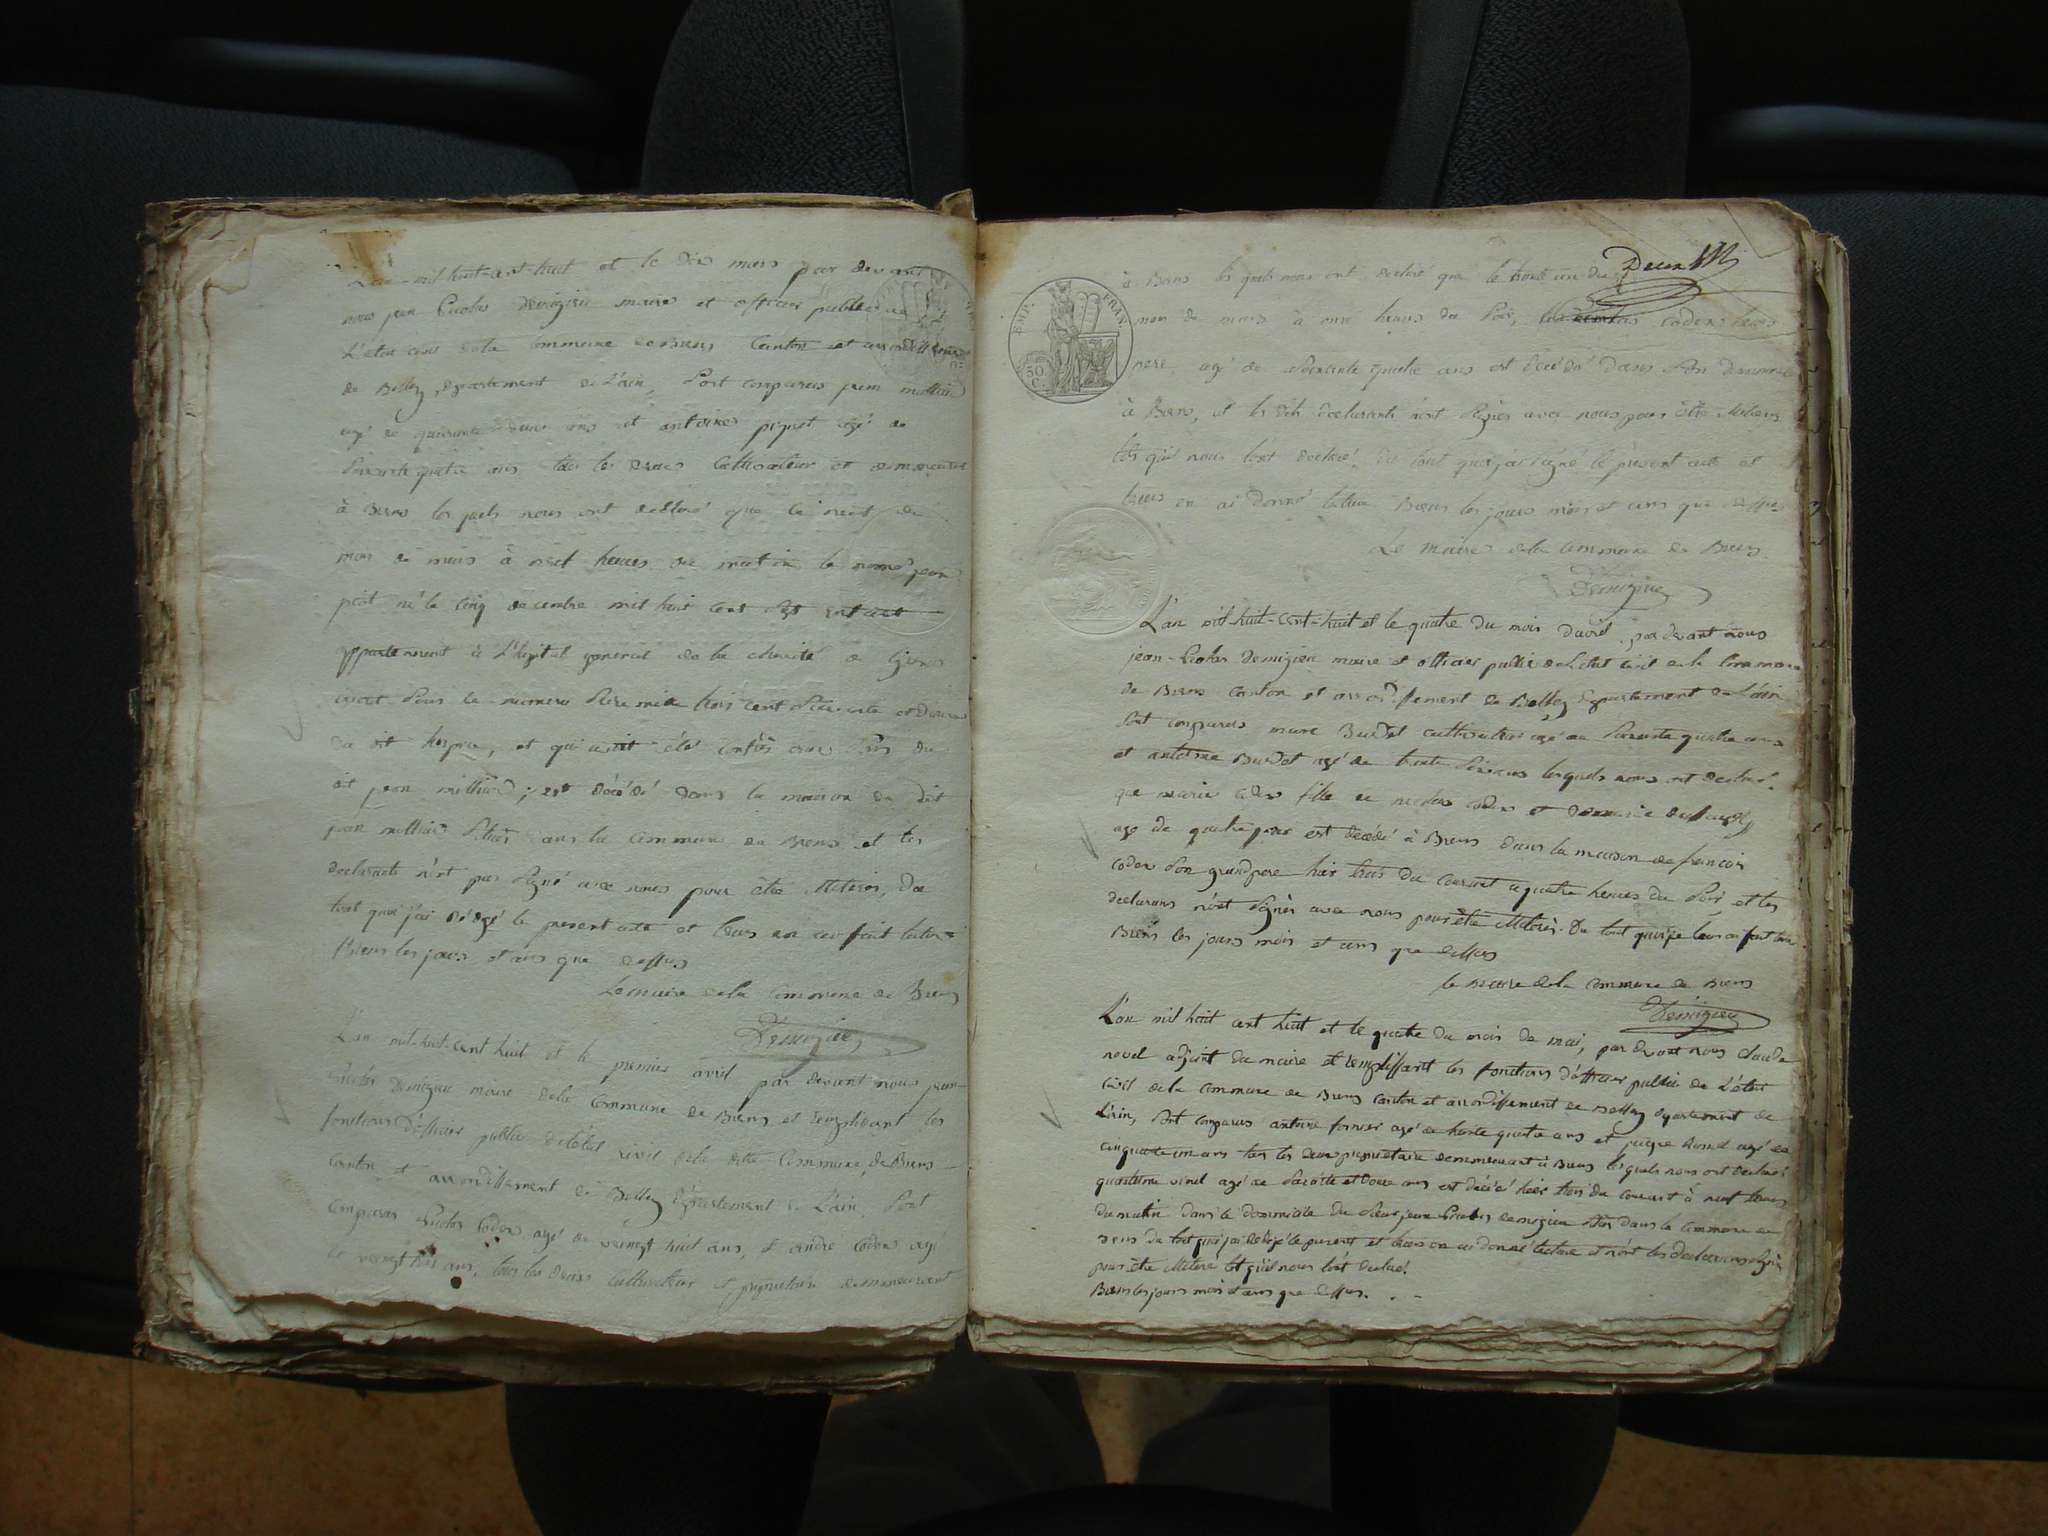 L'an mil-huit-cent-huit et le dix mars par devant
nous jean Nicolas Demigieu maire et officier public de
L'état civil de la Commune de Brens Canton et arrondissement
de Belley, département de L'ain, sont comparus jean
agé de quarante deux ans et antoine pignet agé de
soixante quatre ans tous les deux Cultivateur et demeurant
à Brens les quels nous ont declaré que le neuf du
mois de mars à neuf heures du matin le nomé jean
né le cinq decembre mil huit cent sept
appartenant à L'hopital general de la charité de
sous le numero seize mille trois cent soixante et douze
du dit hospice, et qui avait été
dit jean ; est décédé dans la maison du dit
jean située dans la Commune de Brens et les
declarants n'ont pas signé avec nous pour être illiterés, De
tout quoi j'ai rédigé le present acte et leurs en ai fait lecture
Brens les jours et ans que dessus
Le maire de la Commune de Brens
Demigieu
L'an mil-huit-cent huit et le premier avril par devant nous jean
Nicolas Demigieu maire de la Commune de Brens et remplissant les
fonctions d'officier public de l'état civil de la dite Commune, de Brens
canton et arrondissement de Belley Département de L'ain, sont
comparus Nicolas Coder agé de vingt huit ans, et andré Coder agé
de vingt ans, tous les deux Cultivateur et propriétaire demeurant
Deux
EMP. FRAN.
50 C.
à Brens les quels nous ont declaré que le trente un du
mois de mars à onze heures du soir, Coder leurs
pere, agé de soixante quatre ans est décédé dans son domicile
à Brens, et les dits declarants n'ont signés avec nous pour être illiterés
tels qu'il nous l'ont declaré, du tout quoi j'ai signé le present acte et
leurs en ai donné lecture Brens les jours mois et ans que dessus
Le maire de la Commune de Brens
Demigieu
L'an mil-huit-cent-huit et le quatre du mois d'avril, par devant nous
jean-Nicolas Demigieu maire et officier public de L'état civil de la Commune
de Brens canton et arrondissement de Belley Département de L'ain
sont comparus marc Burdet cultivateur agé de soixante quatre ans
et antoine Burdet agé de trente six ans lesquels nous ont declaré
que marie coder fille de nicolas coder et
age de quatre jour est décédé à Brens dans la maison de francois
coder son grandpere hier trois du courant à quatre heures du soir et les
declarans n'ont signés avec nous pour être illiterés. Du tout quoi je leurs ai fait lecture
Brens les jours mois et ans que dessus
le maire de la Commune de Brens
Demigieu
L'an mil huit cent huit et le quatre du mois de mai, par devant nous Claude
novel adjoint du maire et remplissant les fonctions d'officier public de L'état
civil de la commune de Brens canton et arrondissement de Belley département de
L'ain, sont comparus antoine fornier agé de trente quatre ans et agé de
cinquante un ans tous les deux propriétaire demeurant à Brens lesquels nous ont declaré
vinet agé de soixante et douze ans est décédé hier trois du courant à neuf heures
du matin dans le domicile du sieur jean Nicolas demigieu sitré dans la commune de
Brens du tout quoi j'ai redigé le present et leurs en ai donné lecture et n'ont les declarans signés
pour être illiteré tel qu'il nous l'ont declaré.
Brens les jours mois et ans que dessus.